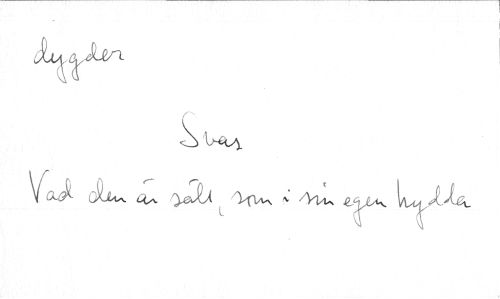 dygder
Svar
Vad den är säll, som i sin egen hydda